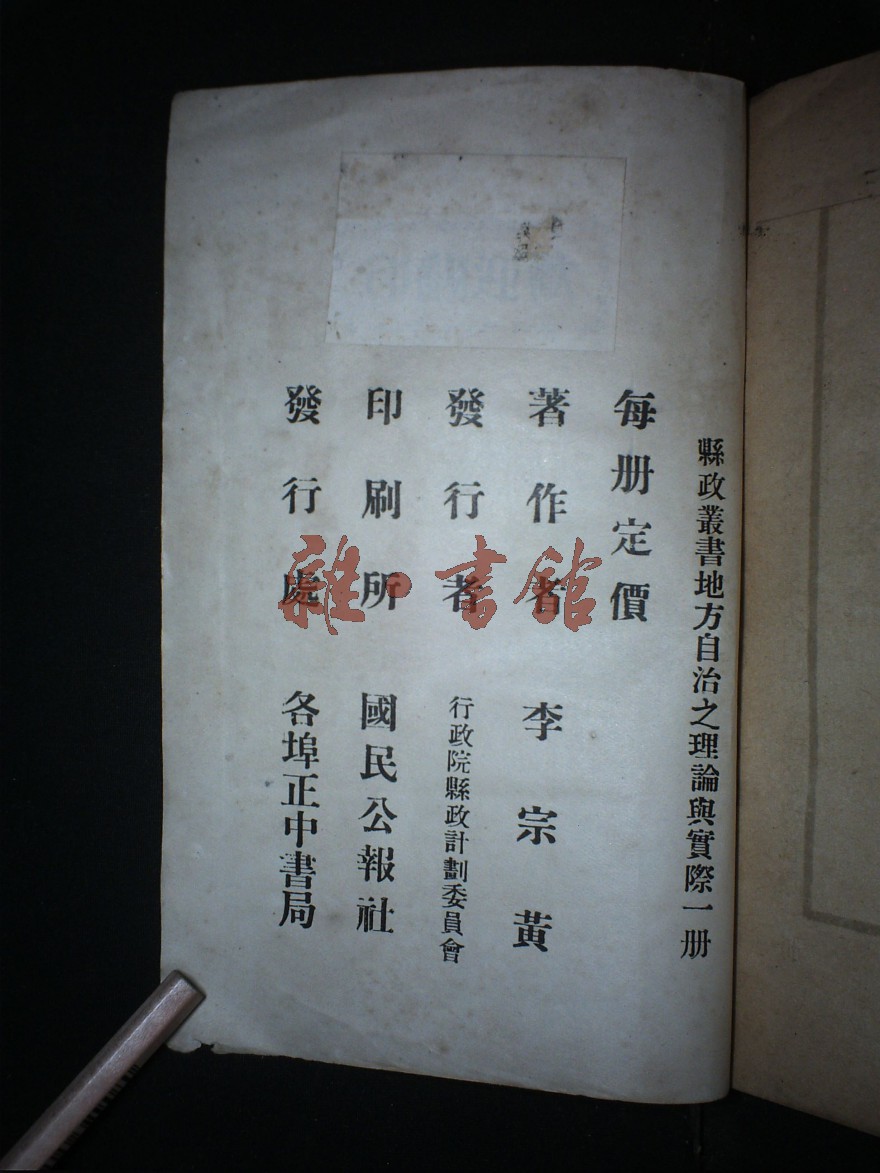 縣政叢書地方自治之理論與實際一册
每册定價
著作者 李宗黃
發行者 行政院縣政計劃委員會
印刷所 國民公報社
發行處 各埠正中書局
雜·書館